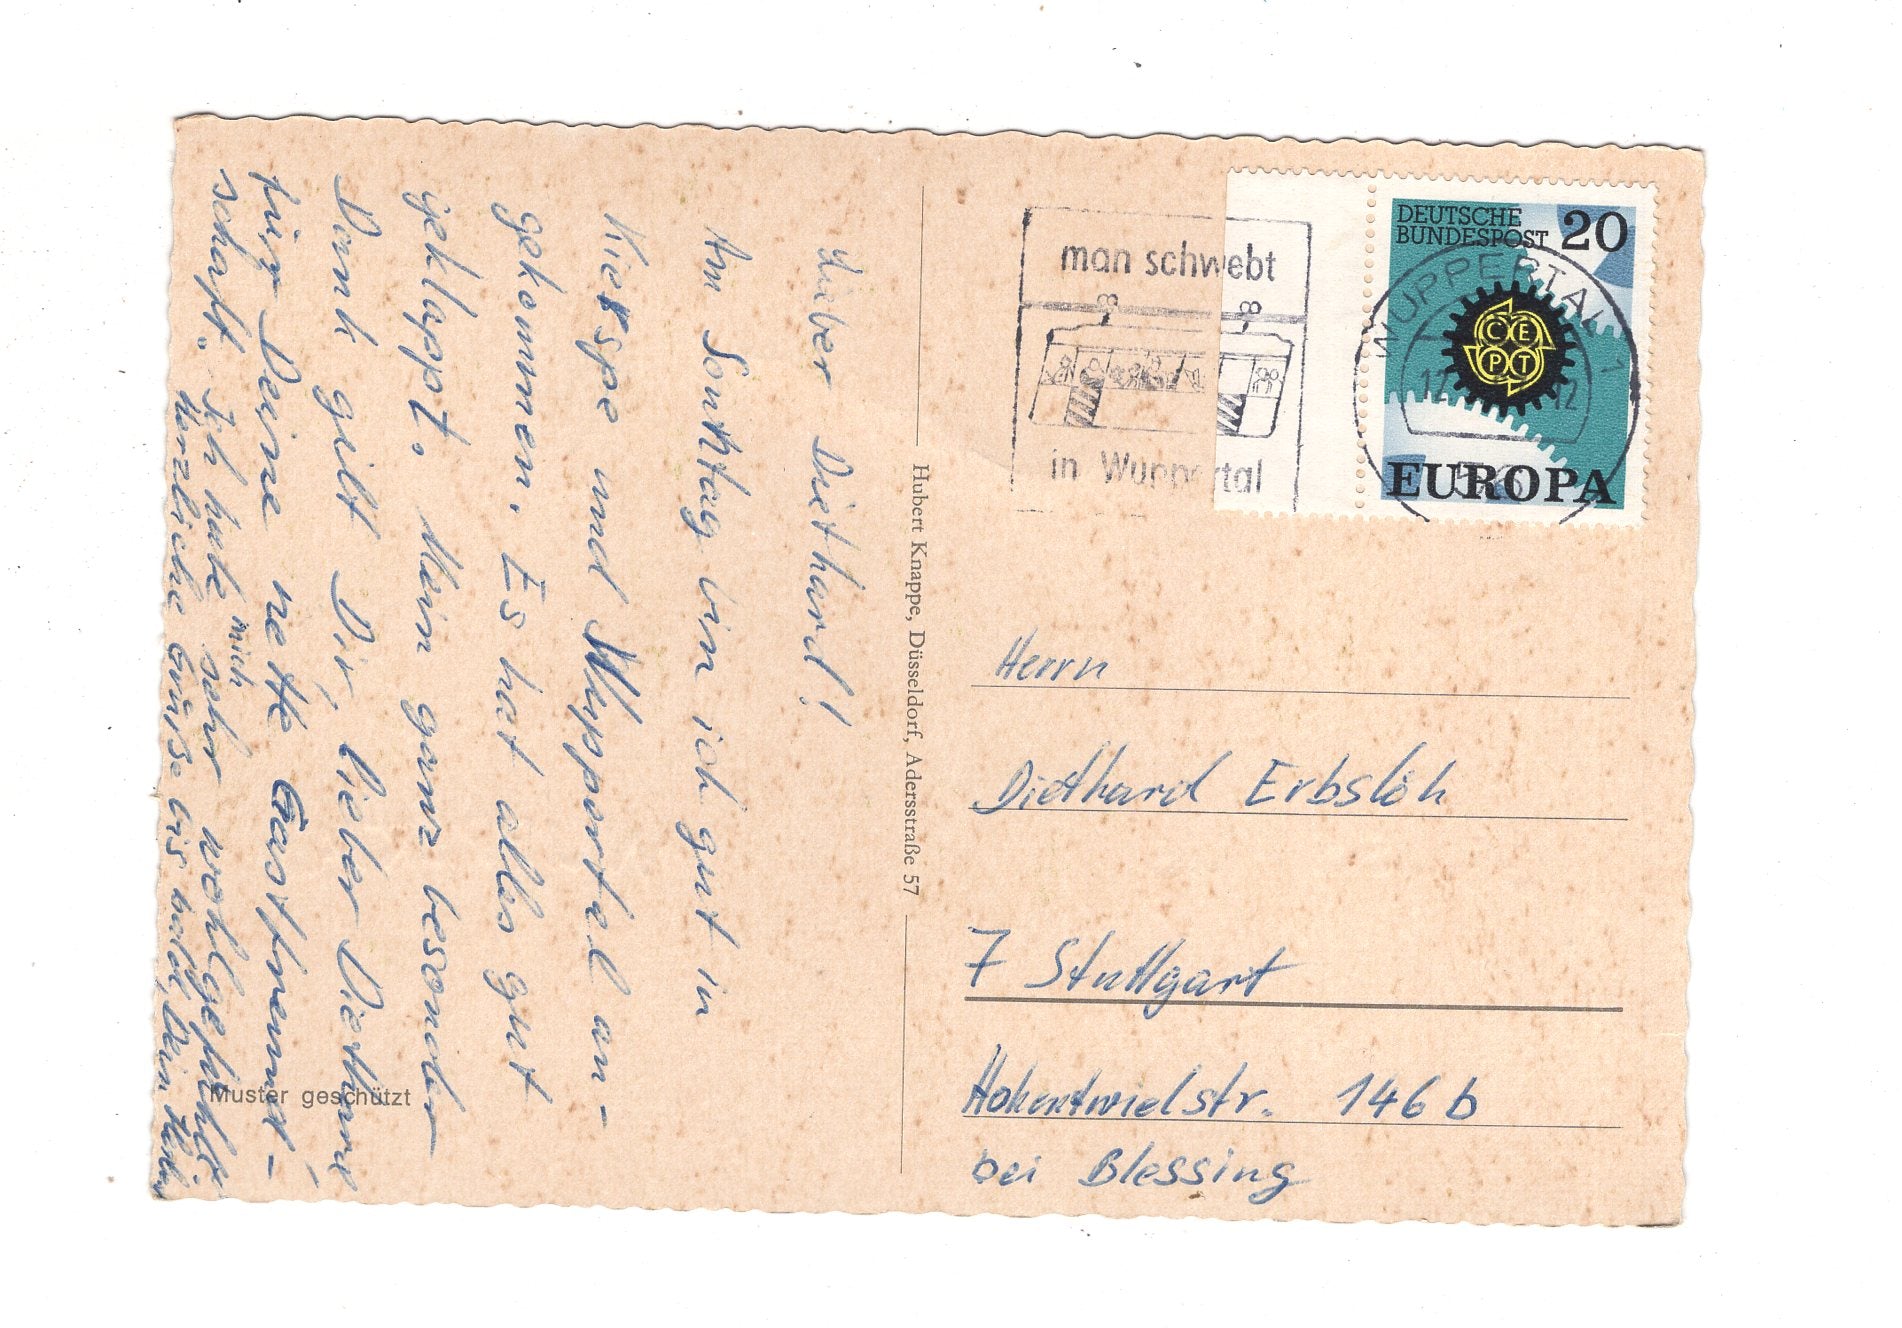 Lieber Diethard!
Am Sonntag bin ich gut in
Kierspe und Wuppertal an-
gekommen. Es hat alles gut
geklappt. Mein ganz besonder
Dank gilt Dir, lieber Diethard
für Deine nette Gastfreund-
schaft. Ich habe mich sehr wohlgefühlt.
Herzliche Grüße bis bald, Dein
Muster geschützt
Hubert Knappe, Düsseldorf, Adersstraße 57
man schwebt
in Wuppertal
DEUTSCHE
BUNDESPOST 20
CEPT
EUROPA
WUPPERTAL 1
12
Herrn
Diethard Erbslöh
7 Stuttgart
Hohentwielstr. 146 b
bei Blessing